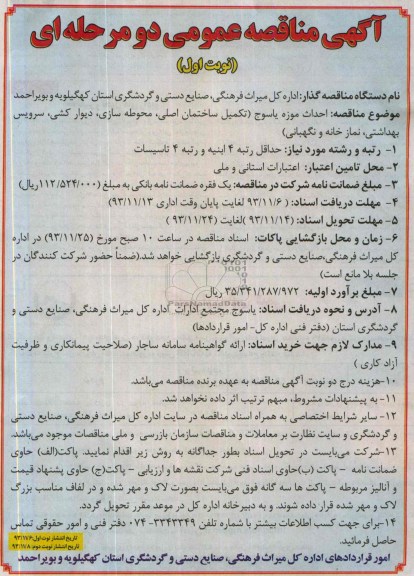 آگهی مناقصه عمومی دو مرحله ای
(نوبت اول)
نام دستگاه مناقصه گذار: اداره کل میراث فرهنگی، صنایع دستی و گردشگری استان کهگیلویه و بویراحمد
موضوع مناقصه: احداث موزه یاسوج (تکمیل ساختمان اصلی، محوطه سازی، دیوار کشی، سرویس
بهداشتی، نماز خانه و نگهبانی)
۱- رتبه و رشته مورد نیاز: حداقل رتبه ۴ ابنیه و رتبه ۴ تاسیسات
۲- محل تامین اعتبار: اعتبارات استانی و ملی
۳- مبلغ ضمانت نامه شرکت در مناقصه: یک فقره ضمانت نامه بانکی به مبلغ (۱۱۲/۵۲۴/۰۰۰ریال)
۴- مهلت دریافت اسناد: (۹۳/۱۱/۶ لغایت پایان وقت اداری ۹۳/۱۱/۱۳)
۵- مهلت تحویل اسناد: (۹۳/۱۱/۱۴ )لغایت (۹۳/۱۱/۲۴ )
۶- زمان و محل بازگشایی پاکات: اسناد مناقصه در ساعت ۱۰ صبح مورخ (۹۳/۱۱/۲۵) در اداره
کل میراث فرهنگی،صنایع دستی و گردشگری بازگشایی خواهد شد.(ضمناً حضور شرکت کنندگان در
جلسه بلا مانع است)
۷- مبلغ برآورد اولیه: ۳۵/۳۴۱/۲۸۷/۹۷۲ ریال
۸- آدرس و نحوه دریافت اسناد: یاسوج مجتمع ادارات اداره کل میراث فرهنگی، صنایع دستی و
گردشگری استان (دفتر فنی اداره کل- امور قراردادها)
۹- مدارک لازم جهت خرید اسناد: ارائه گواهینامه سامانه ساجار (صلاحیت پیمانکاری و ظرفیت
آزاد کاری )
۱۰-هزینه درج دو نوبت آگهی مناقصه به عهده برنده مناقصه می‌باشد.
۱۱- به پیشنهادات مشروط، مبهم ترتیب اثر داده نخواهد شد.
۱۲- سایر شرایط اختصاصی به همراه اسناد مناقصه در سایت اداره کل میراث فرهنگی، صنایع دستی
و گردشگری و سایت نظارت بر معاملات و مناقصات سازمان بازرسی و ملی مناقصات موجود می‌باشد.
۱۳-شرکت می‌بایست در تحویل اسناد بطور جداگانه به روش زیر اقدام نمایید. پاکت(الف) حاوی
ضمانت نامه - پاکت (ب)حاوی اسناد فنی شرکت نقشه ها و ارزیابی - پاکت(ج) حاوی پیشنهاد قیمت
و آنالیز مربوطه - پاکت ها سه گانه فوق می‌بایست بصورت لاک و مهر شده و در لفاف مناسب بزرگ
لاک و مهر شده قرار داده شوند. و به دبیرخانه اداره کل در موعد مقرر تحویل گردد.
۱۴-برای جهت کسب اطلاعات بیشتر با شماره تلفن ۳۳۴۳۳۴۹-۰۷۴ دفتر فنی و امور حقوقی تماس
حاصل فرمائید.
تاریخ انتشار نوبت اول:
تاریخ انتشار نوبت دوم:
امور قراردادهای اداره کل میراث فرهنگی، صنایع دستی و گردشگری استان کهگیلویه و بویراحمد
ParsNamadData